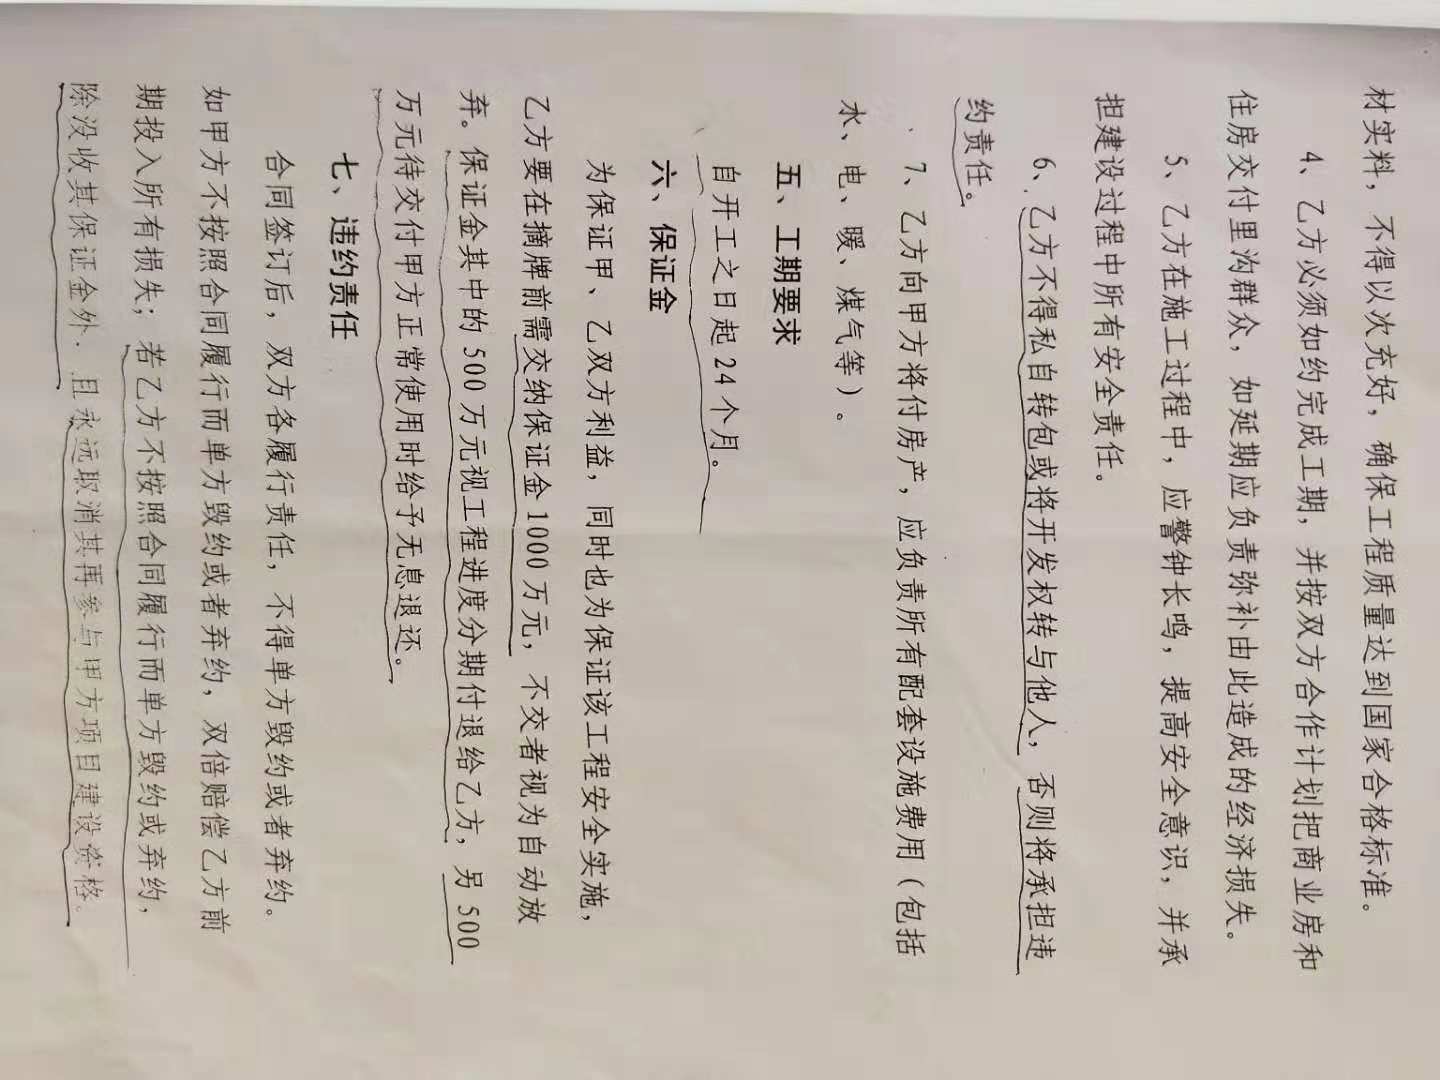 材实料，不得以次充好，确保工程质量达到国家合格标准。
4、乙方必须如约完成工期，并按双方合作计划把商业房和
住房交付里沟群众，如延期应负责弥补由此造成的经济损失。
5、乙方在施工过程中，应警钟长鸣，提高安全意识，并承
担建设过程中所有安全责任。
6、乙方不得私自转包或将开发权转与他人，否则将承担违
约责任。
7、乙方向甲方将付房产，应负责所有配套设施费用（包括
水、电、暖、煤气等）。
五、工期要求
自开工之日起24个月。
六、保证金
为保证甲、乙双方利益，同时也为保证该工程安全实施，
乙方要在摘牌前需交纳保证金1000万元，不交者视为自动放
弃。保证金其中的500万元视工程进度分期付退给乙方，另500
万元待交付甲方正常使用时给予无息退还。
七、违约责任
合同签订后，双方各履行责任，不得单方毁约或者弃约。
如甲方不按照合同履行而单方毁约或者弃约，双倍赔偿乙方前
期投入所有损失；若乙方不按照合同履行而单方毁约或弃约，
除没收其保证金外，且永远取消其再参与甲方项目建设资格。